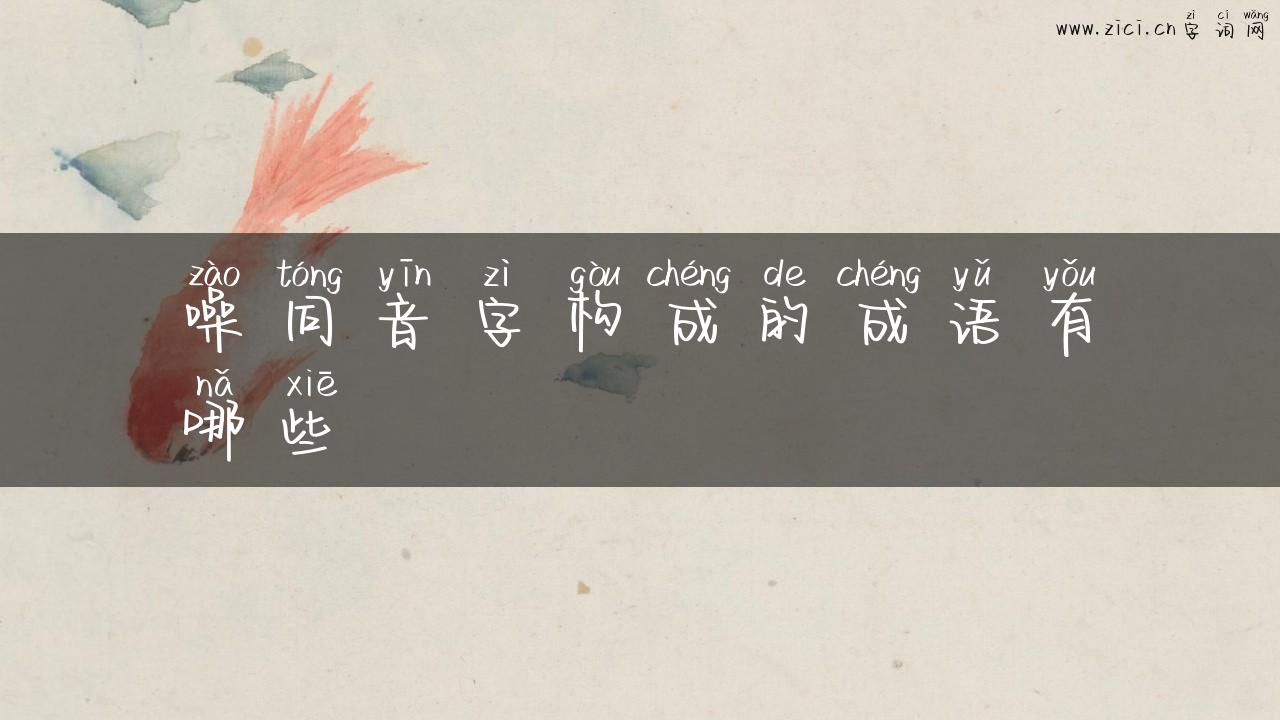 zì cí wǎng
www.zici.cn 字 词 网
zào tóng yīn zì gòu chéng de chéng yǔ yǒu
噪 同 音 字 构 成 的 成 语 有
nǎ xiē
哪 些